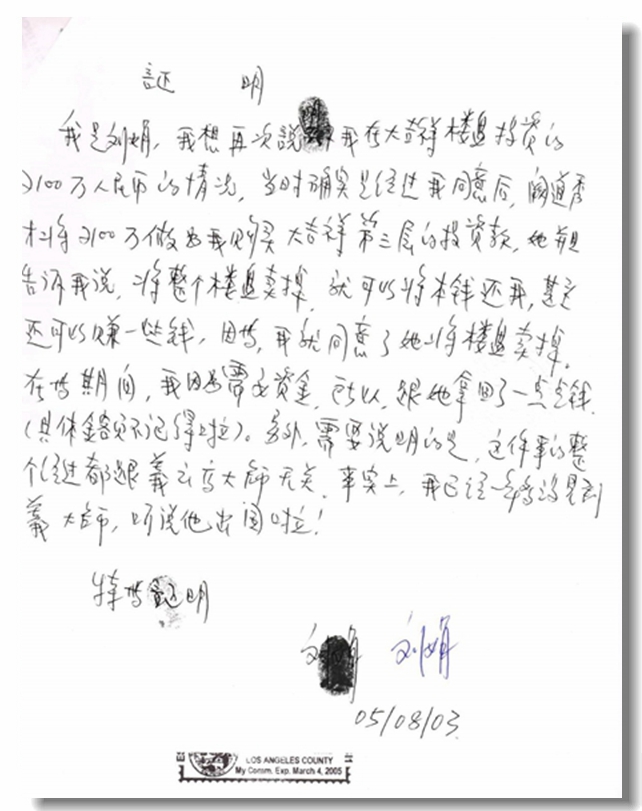 証 明
我是刘娟，我想再次說明我在大吉祥楼盘投资的
2100万人民币的情况，当时确实是经过我同意后，阙道秀
才将2100万做为我购买大吉祥第三层的投资款，她并且
告诉我说，将整个楼盘卖掉，就可以将本钱还我，甚至
还可以赚一些钱，因此，我就同意了她将楼盘卖掉。
在此期间，我因为需用资金，所以，跟她拿回了一点点钱
(具体金额不记得啦)。另外，需要说明的是，这件事的整
个经过都跟義云高大师无关，事实上，我已经一年没见到
義大师，听说他出国啦！
特此証明
刘娟 刘娟
05/08/03.
LOS ANGELES COUNTY
My Comm. Exp. March 4, 2005